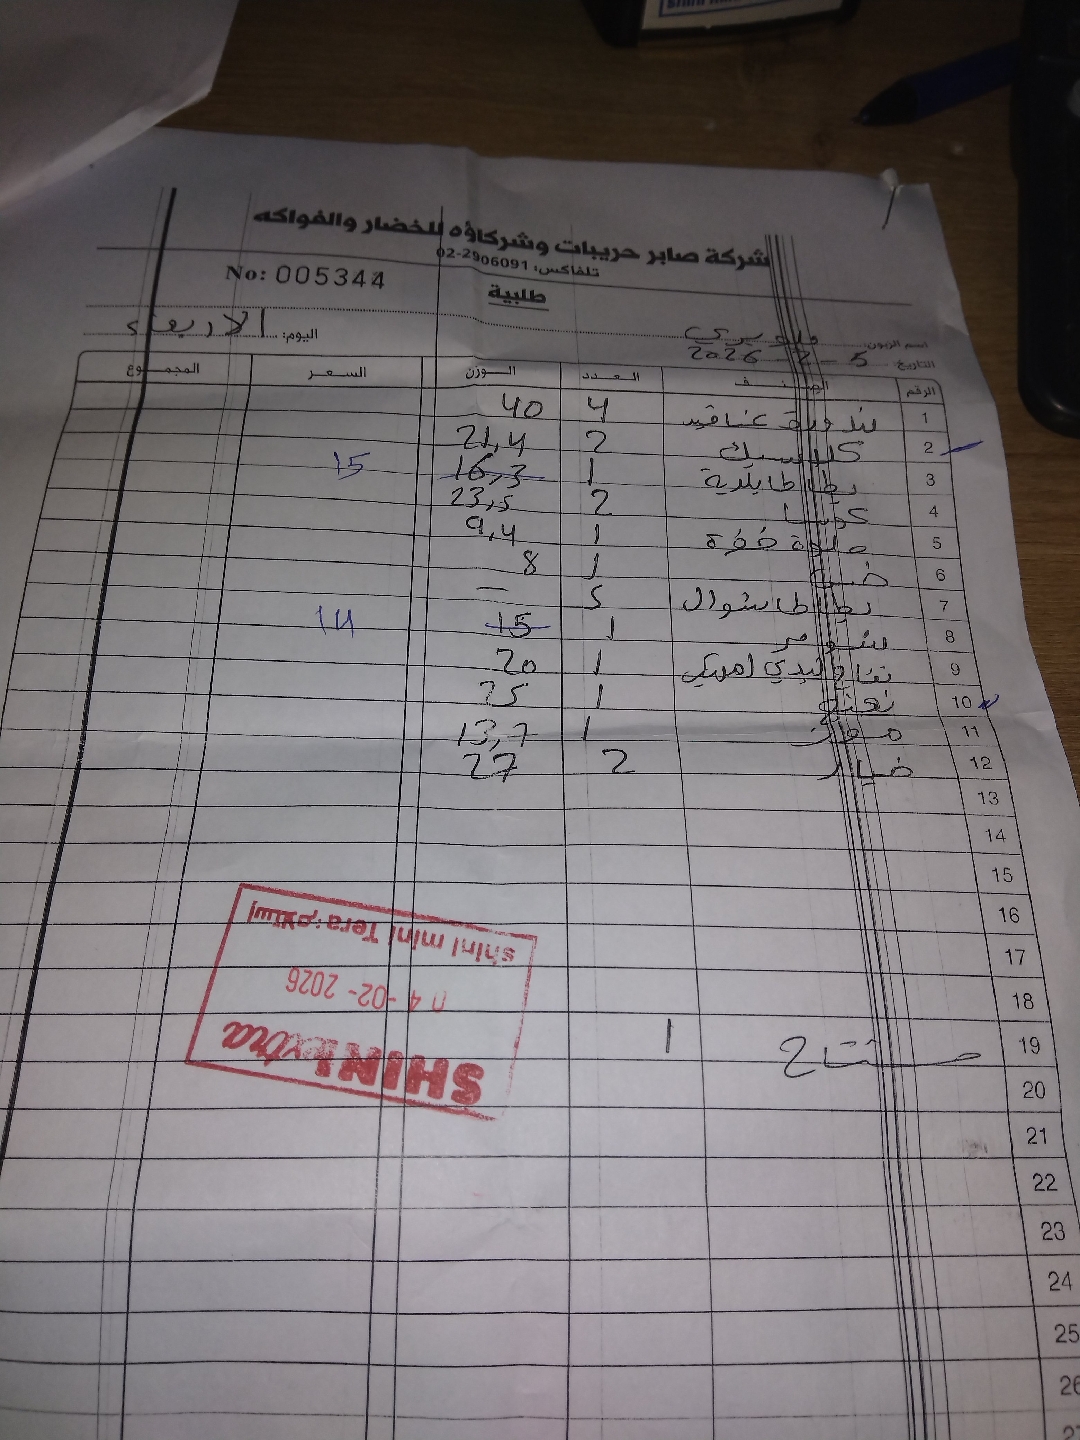 شركة صابر حريبات وشركاؤه للخضار والفواكه
تلفاكس: 02-2906091
No: 005344
طلبية
اسم الزبون:
اليوم: الاربعاء
التاريخ: 5-2-2026
الرقم الصنف العدد الوزن السعر المجموع
1 بندورة عناقيد 4 40
2 كلاسيك 2 21,4
3 بطاطا بلدية 1 16,3 15
4 كوسا 2 23,5
5 1 9,4
6 خس 1 8
7 بطاطا شوال 5 —
8 شومر 1 15 14
9 تفاح 1 20
10 نعنع 1 25
11 موز 1 13,7
12 خيار 2 27
13
14
15
16
17
18
19 1
20
21
22
23
24
25
26
27
SHINI extra
04-02-2026
shini mini Tera: إستلام